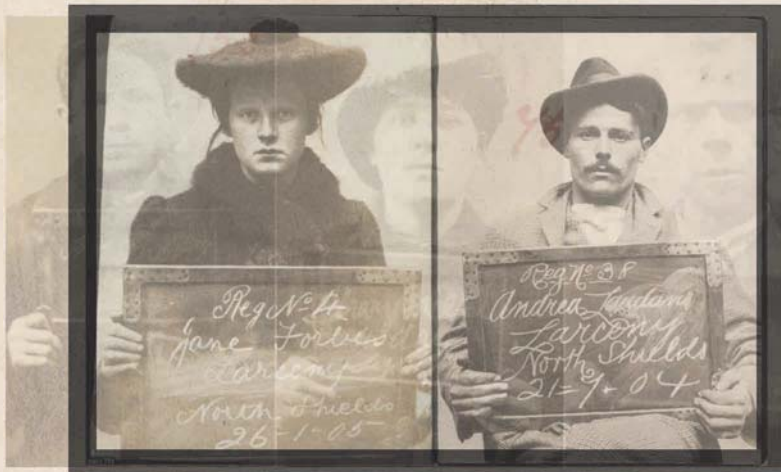 Reg No 4
Jane Forbes
Larceny
North Shields
26=1-05
Reg No 38
Andrea
Larceny
North Shields
21=7-04